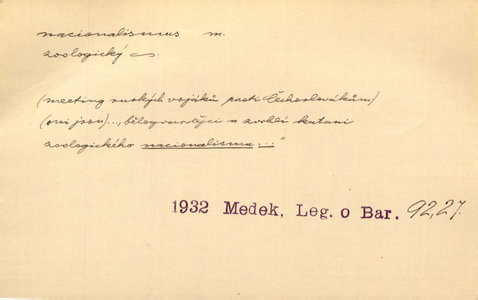 nacionalismus m.
zoologický
(meeting ruských vojáků proti Čechoslovákům)
(oni jsou)..., bělogvardějci a zvrhlí katani
zoologického nacionalismu..."
1932 Medek, Leg. o Bar. 92,27.